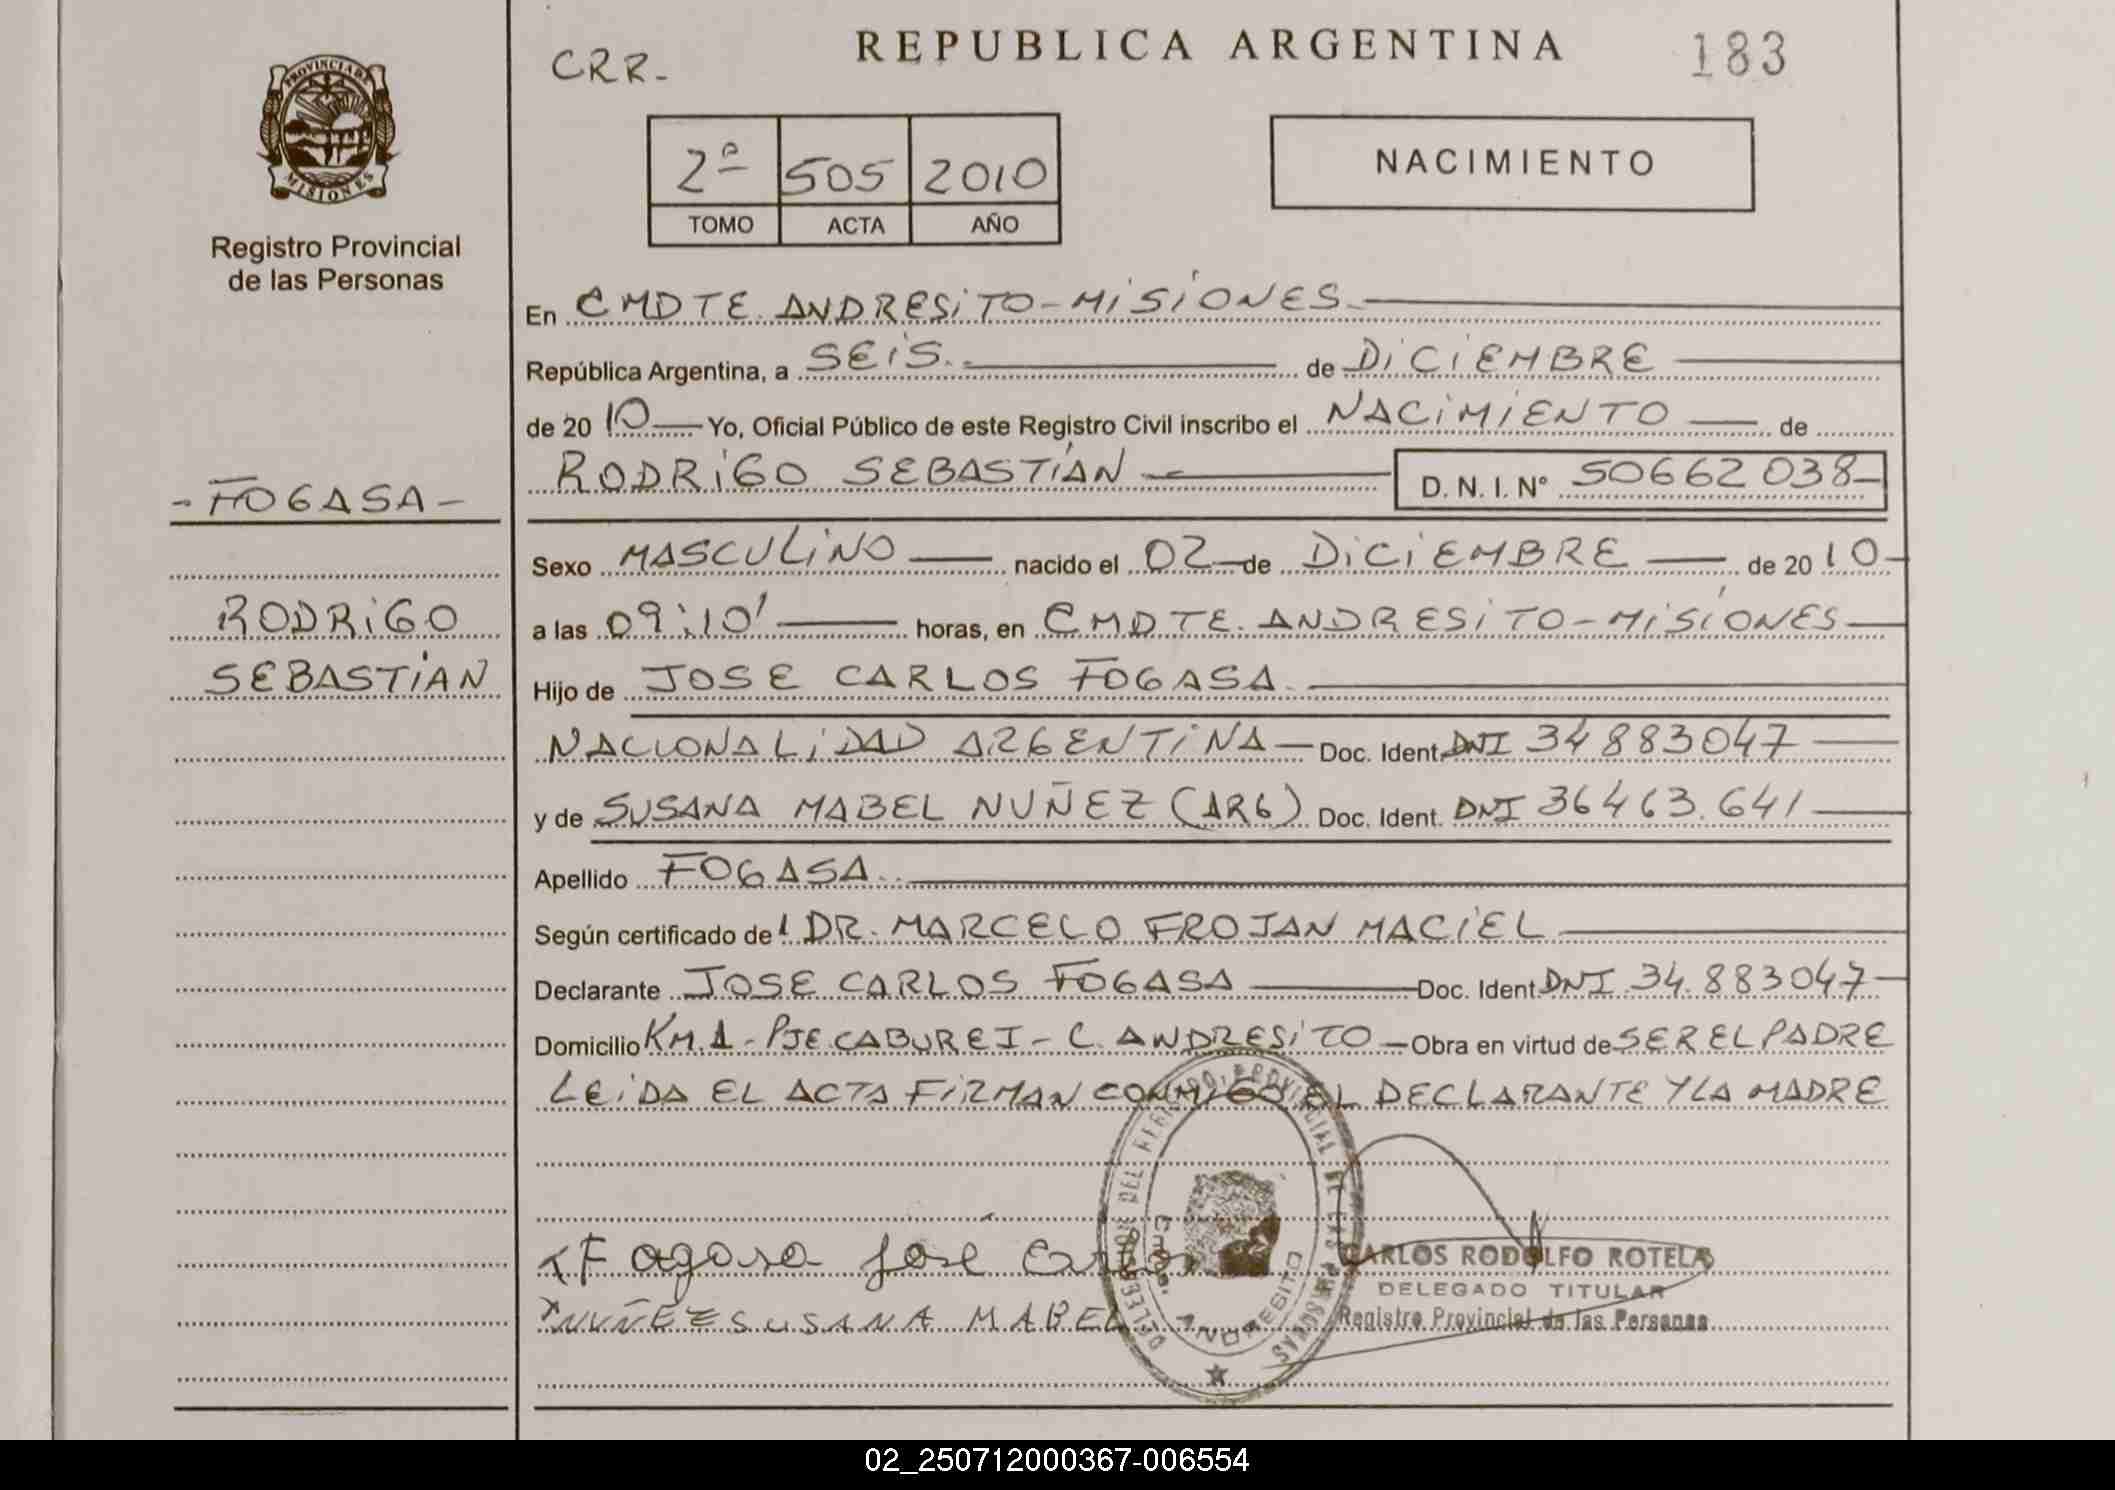 CRR-
REPUBLICA ARGENTINA
183
PROVINCIA DE
MISIONES
Registro Provincial
de las Personas
2º 505 2010
TOMO ACTA AÑO
NACIMIENTO
En CMDTE. ANDRESITO - MISIONES
República Argentina, a SEIS. de DICIEMBRE
de 2010 Yo, Oficial Público de este Registro Civil inscribo el NACIMIENTO de
RODRIGO SEBASTIAN D. N. I. Nº 50662038-
- FOGASA -
RODRIGO
SEBASTIAN
Sexo MASCULINO nacido el 02 de DICIEMBRE de 2010
a las 09:10' horas, en CMDTE. ANDRESITO - MISIONES
Hijo de JOSE CARLOS FOGASA.
NACIONALIDAD ARGENTINA - Doc. Ident. DNI 34883047
y de SUSANA MABEL NUÑEZ (ARG) Doc. Ident. DNI 36463.641
Apellido FOGASA.
Según certificado del DR. MARCELO FROJAN MACIEL
Declarante JOSE CARLOS FOGASA Doc. Ident. DNI 34.883047
Domicilio KM. 1 - PJE CABUREI - C. ANDRESITO - Obra en virtud de SER EL PADRE
LEIDA EL ACTA FIRMAN CONMIGO EL DECLARANTE Y LA MADRE
Fagosa José
NUÑEZ SUSANA MABEL
DELEGACION DEL REGISTRO PROVINCIAL DE LAS PERSONAS
Cmdte. ANDRESITO
CARLOS RODOLFO ROTELA
DELEGADO TITULAR
Registro Provincial de las Personas
02_250712000367-006554